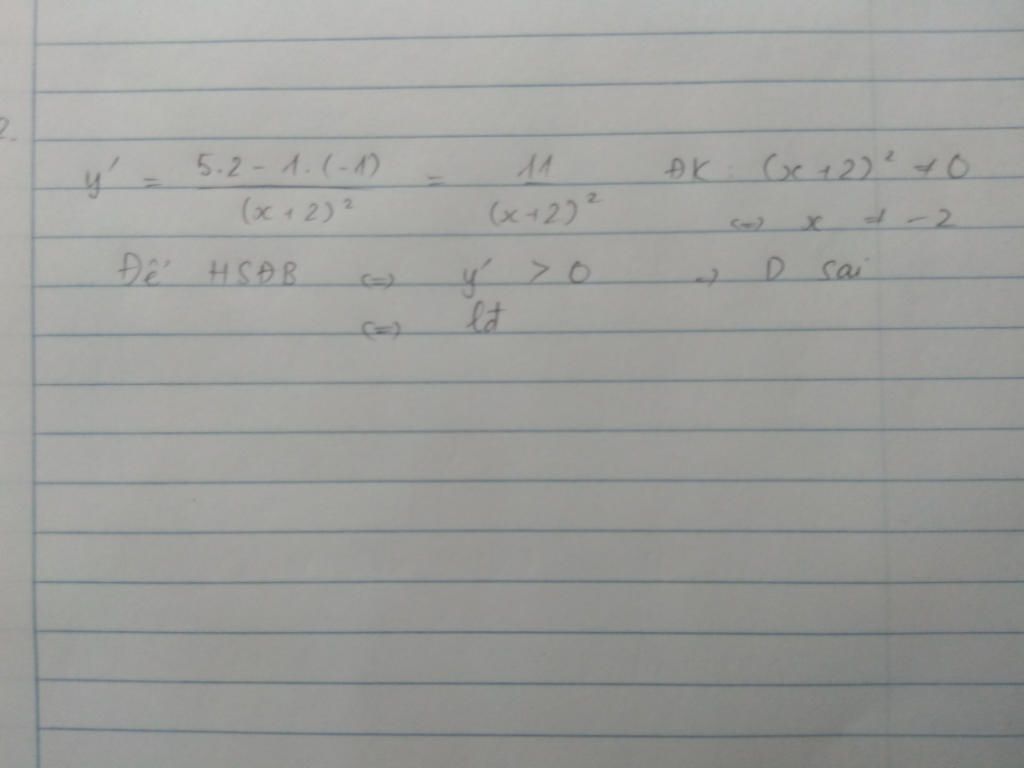 2.
y' = \frac{5.2 - 1.(-1)}{(x+2)^2} = \frac{11}{(x+2)^2} ĐK: (x+2)^2 ≠ 0
<=> x ≠ -2
Để HSĐB <=> y' > 0 -> D sai
<=> lđ